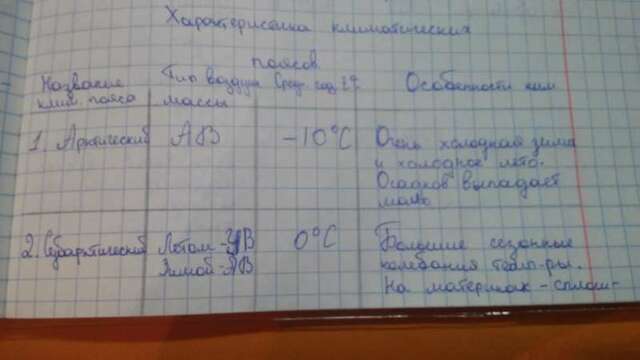 Характеристика климатических
поясов.
Название Тип воздуш. Сред. год. t° Особенности клим.
клим. пояса массы
1. Арктический АВ -10°C Очень холодная зима
и холодное лето.
Осадков выпадает
мало
2. Субарктический Летом - УВ 0°C Большие сезонные
Зимой - АВ колебания темп-ры.
На материках - сплош-